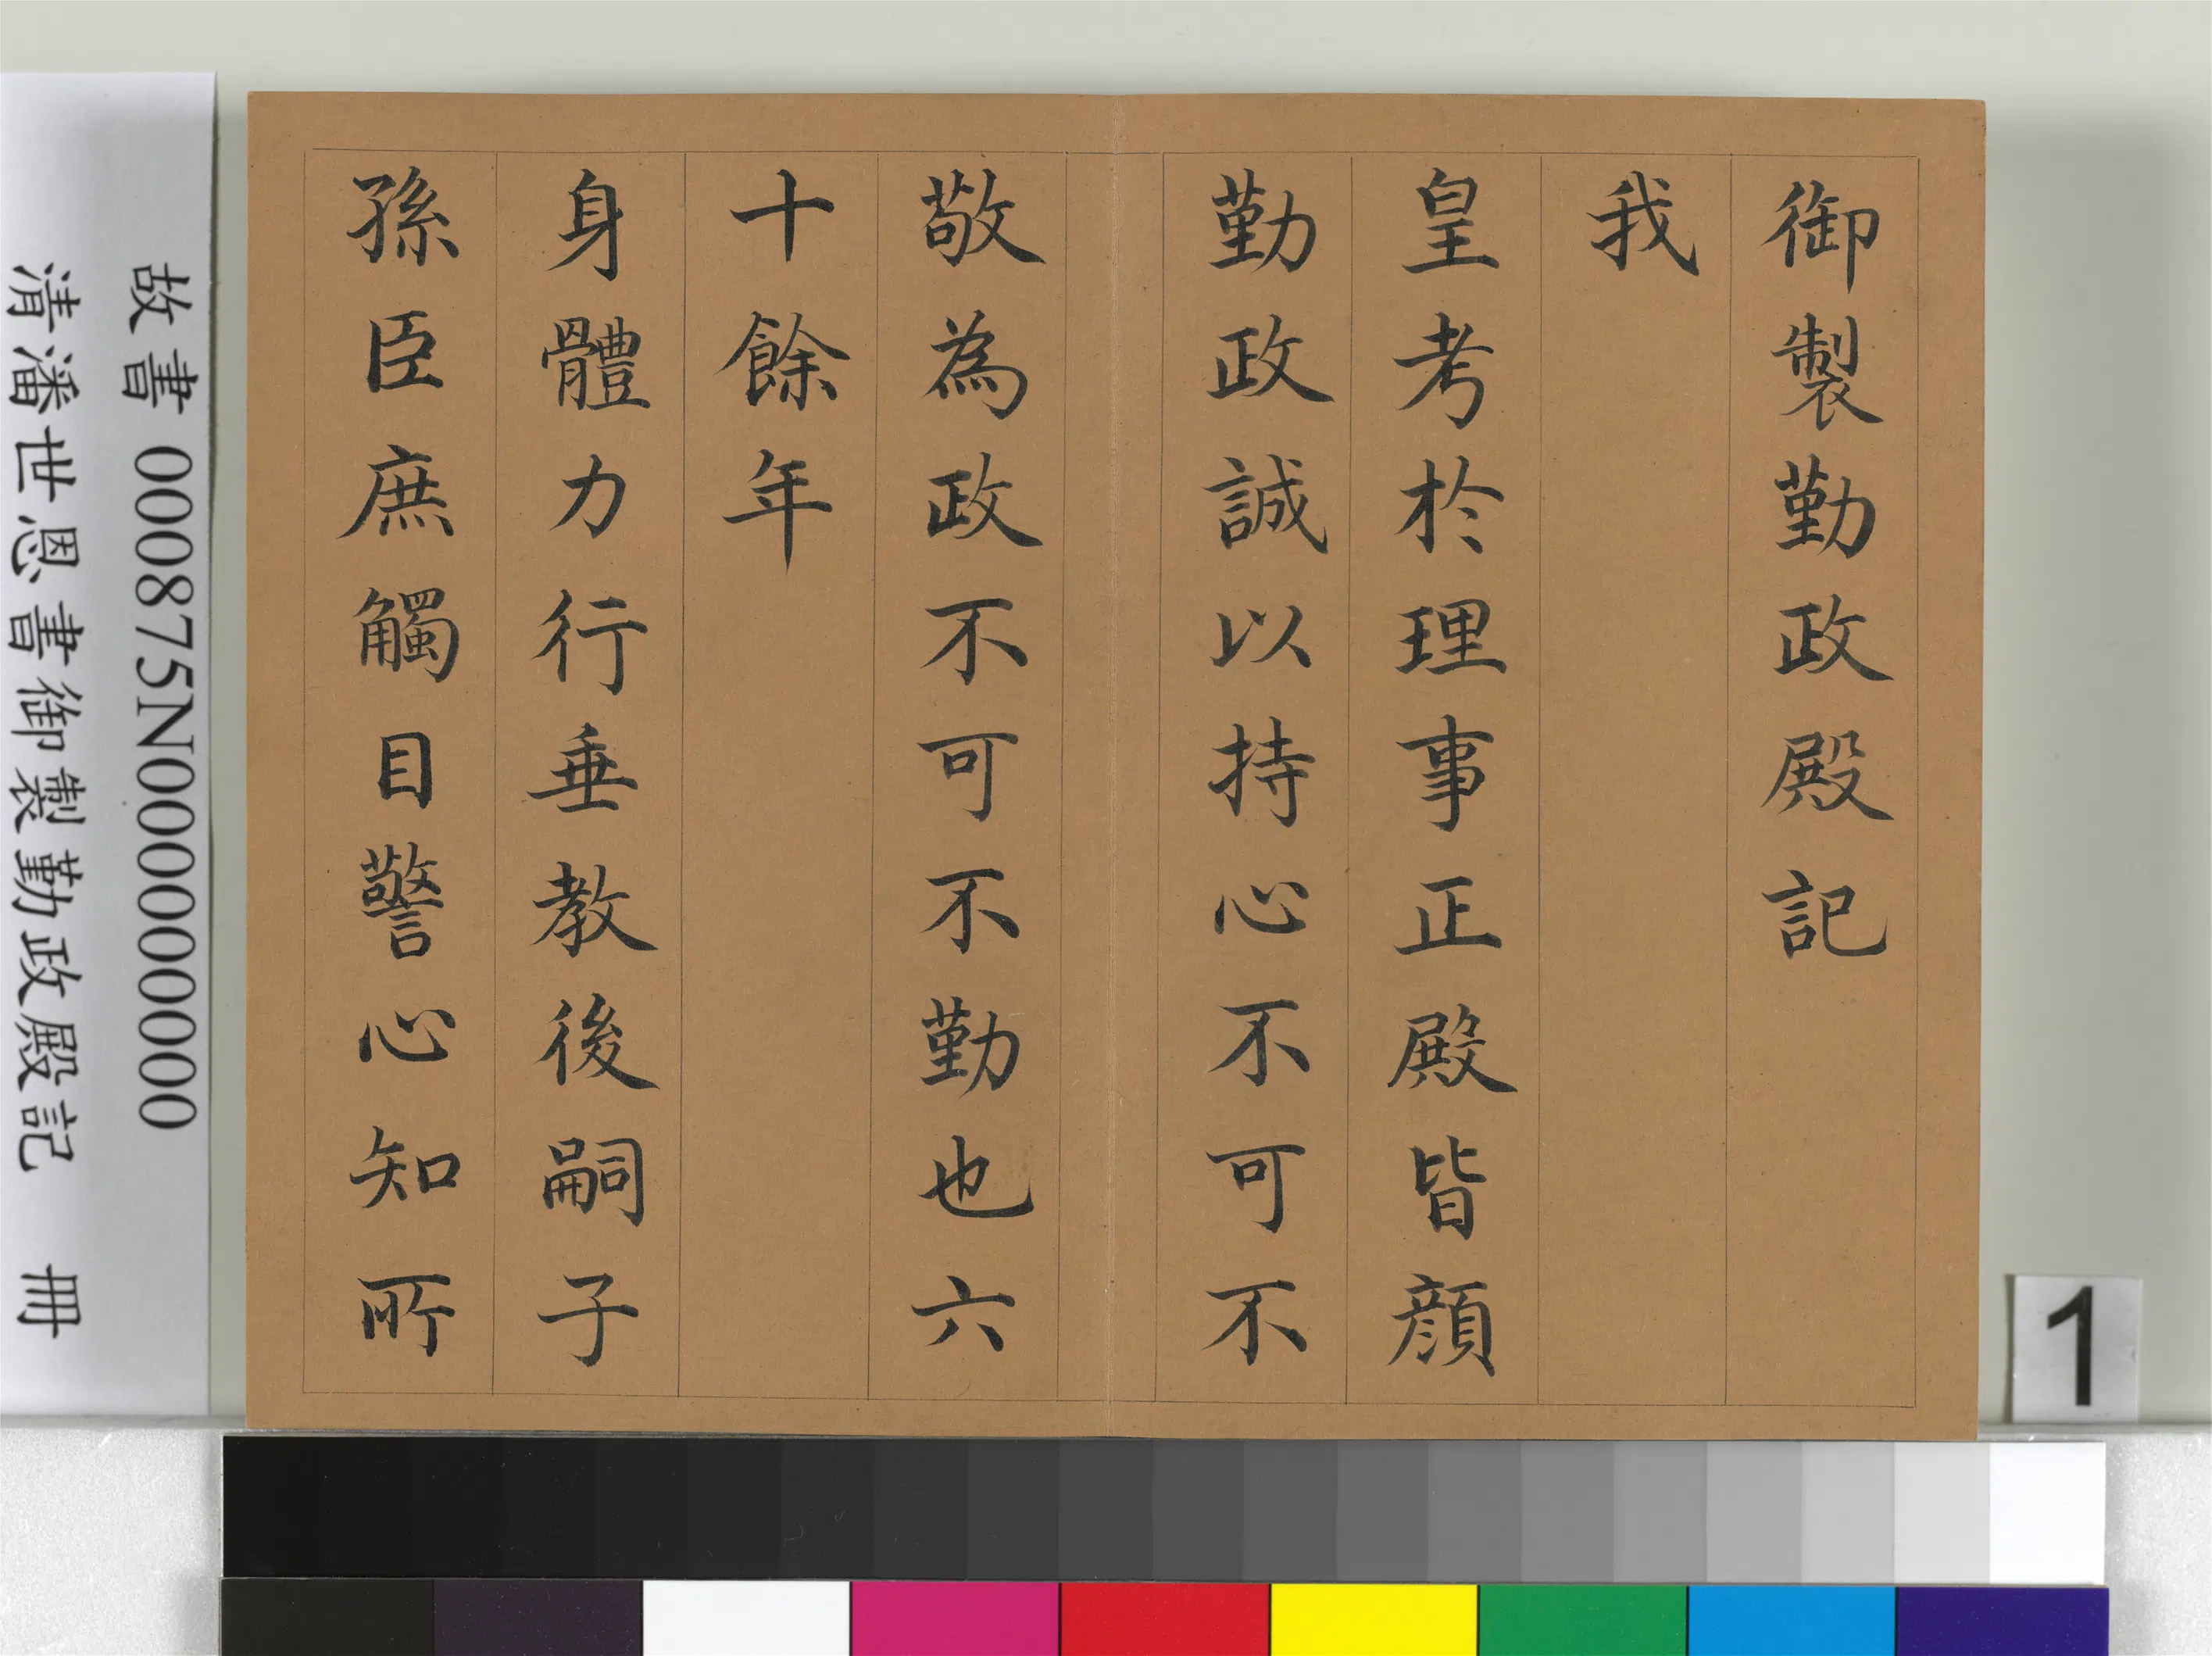 御製勤政殿記
我
皇考於理事正殿皆顏
勤政誠以持心不可不
敬為政不可不勤也六
十餘年
身體力行垂教後嗣子
孫臣庶觸目警心知所
故書 000875N000000000
清潘世恩書御製勤政殿記 冊
1